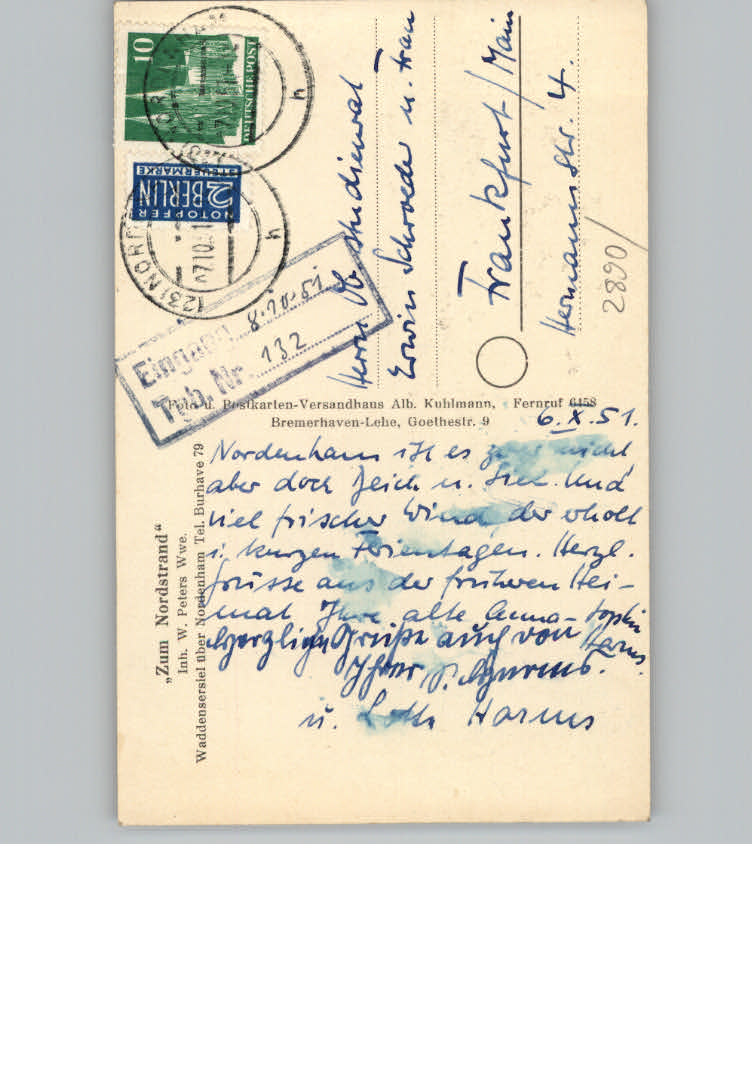 10
DEUTSCHE POST
NOTOPFER
2 BERLIN
STEUERMARKE
(23) NORD
h
Eingang 8.10.51
Tgb. Nr. 132
Herrn Ob. Studienrat
Erwin Schroeder u. Frau
Frankfurt/Main
Hermannstr. 4.
2890/
Foto u. Postkarten-Versandhaus Alb. Kuhlmann, Fernruf 6458
Bremerhaven-Lehe, Goethestr. 9
„Zum Nordstrand“
Inh. W. Peters Wwe.
Waddensersiel über Nordenham Tel. Burhave 79
6.X.51.
Nordenham ist es zwar nicht,
aber doch Deich u. Siel. Und
viel frischer Wind, der erholt
i. kurzen Ferientagen. Herzl.
Grüsse aus der früheren Hei-
mat Ihre alte Anna-Sophie
Harms.
Herzliche Grüße auch von
Ihrer
u. Lotte Harms